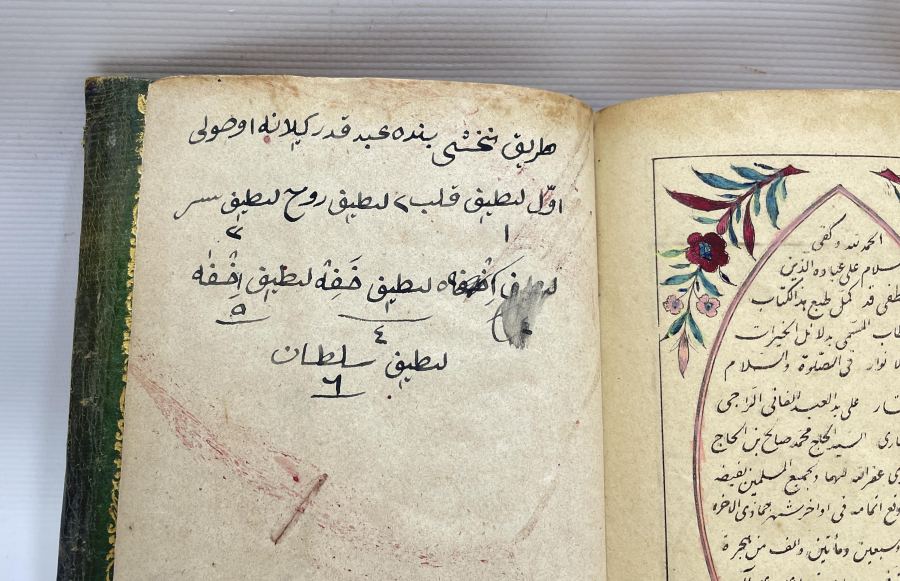 طريق نخشى بنده عبد قدر كيلانه اوصولى
اوّل لطيف قلب ٢ لطيف روح لطيف سر
١
٣
لطيف خَفِهْ لطيف اَخْفَهْ
٤
٥
لطيف سلطان
٦
الحمد لله وكفى
سلام على عباده الذين
طفى قد كمل طبع هذا الكتاب
طاب المسمى بدلائل الخيرات
لانوار فى الصلوة والسلام
تار على يد العبد الفانى الراجى
ارى السيد الحاج محمد صالح بن الحاج
غفر الله لهما ولجميع المسلمين بفيضه
وقع اتمامه فى اواخر شهر جمادى الاخره
وسبعين ومأتين والف من هجرة